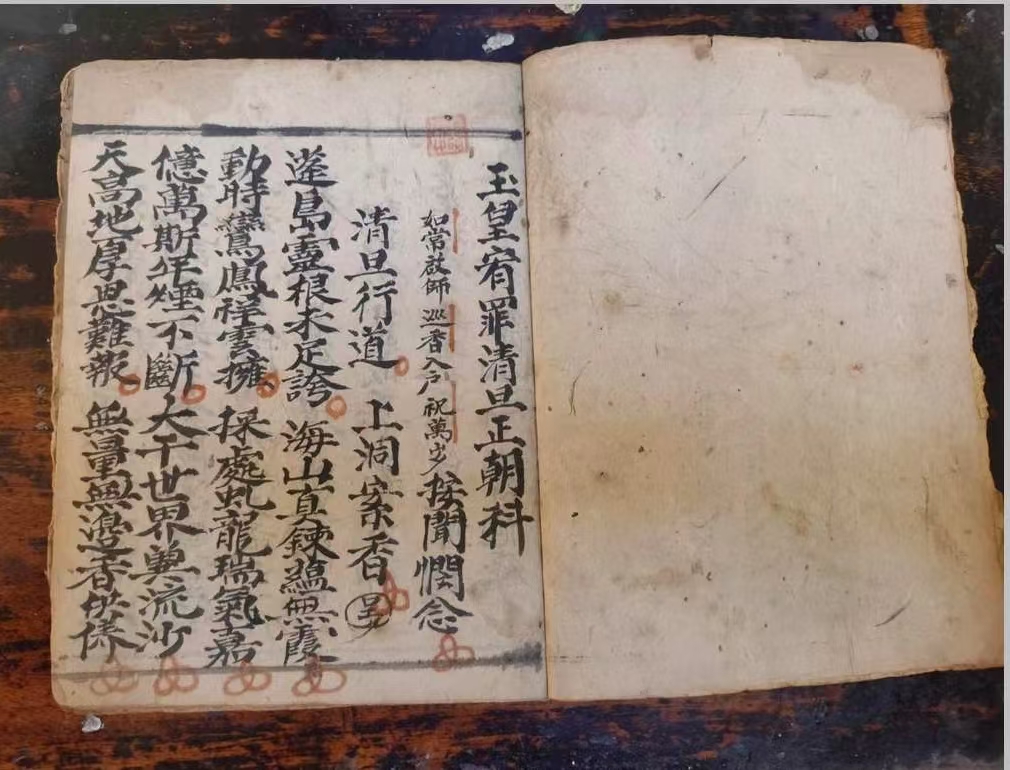 玉皇宥罪清旦正朝科
如常啟師 巡香入戶 祝萬歲 按聞憫念
清旦行道 上洞案香
蓬島靈根未足誇 海山真鍊蘊無霞
動時鸞鳳祥雲擁 採處虬龍瑞氣嘉
億萬斯年煙不斷 大千世界興流沙
天高地厚恩難報 無量無邊香供